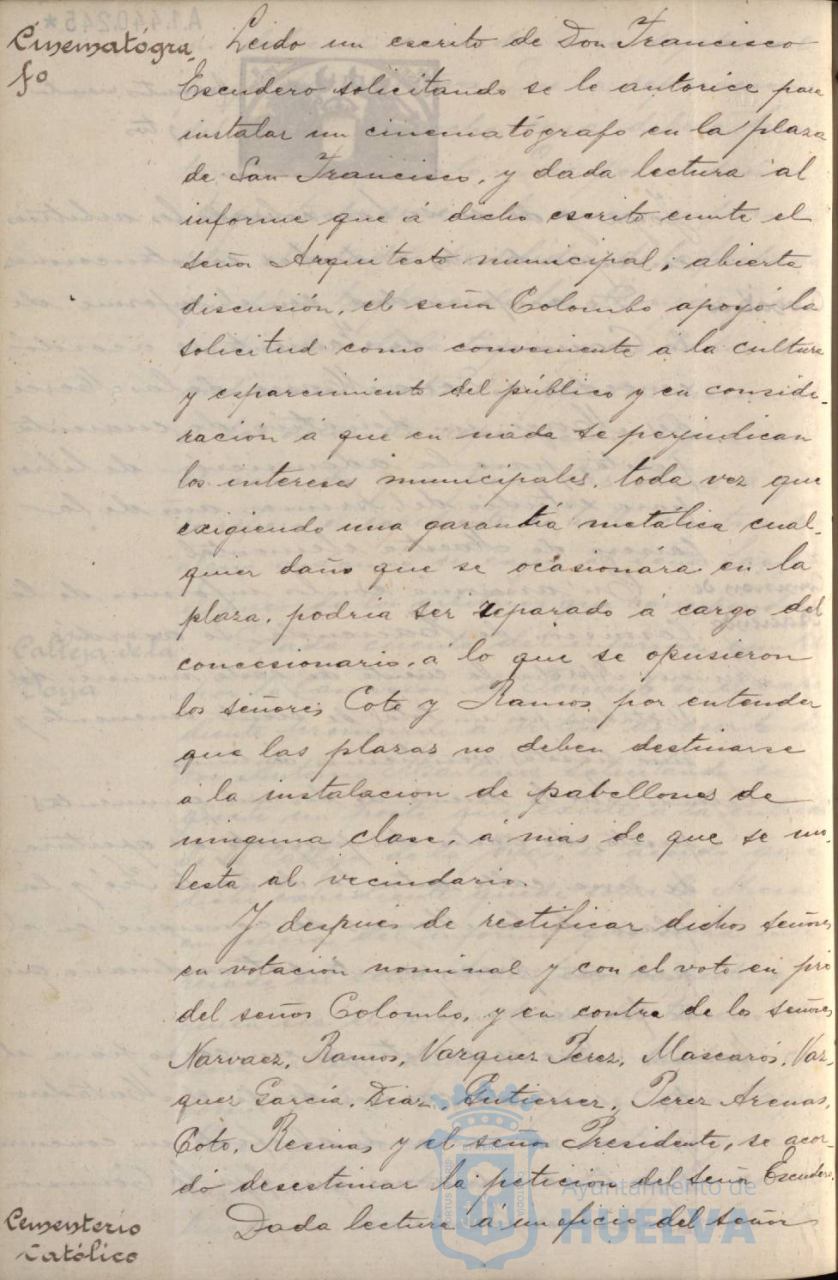 Cinematógra-
fo
Leido un escrito de Don Francisco
Escudero solicitando se le autorice para
instalar un cinematógrafo en la plaza
de San Francisco, y dada lectura al
informe que á dicho escrito emite el
señor Arquitecto municipal; abierta
discusión, el señor Colombo apoyó la
solicitud como conveniente á la cultura
y esparcimiento del público y en conside-
ración á que en nada se perjudican
los intereses municipales, toda vez que
exigiendo una garantía metálica cual-
quier daño que se ocasionára en la
plaza, podría ser reparado á cargo del
concesionario, á lo que se opusieron
los señores Coto y Ramos por entender
que las plazas no deben destinarse
á la instalación de pabellones de
ninguna clase, á mas de que se mo-
lesta al vecindario.
Y después de rectificar dichos señores
en votación nominal y con el voto en pró
del señor Colombo, y en contra de los señores
Narvaez, Ramos, Vazquez Perez, Mascarós, Vaz-
quez García, Diaz, Gutierrez, Perez Arenas,
Coto, Resinas y el señor Presidente, se acor-
dó desestimar la petición del señor Escudero.
Cementerio
Católico
Dada lectura á un oficio del señor
Ayuntamiento de
HUELVA
A.1.440.245*